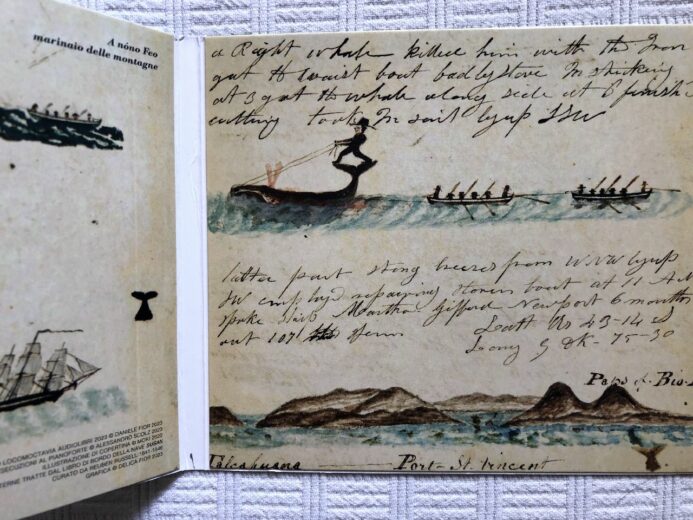 A nóno Feo
marinaio delle montagne
LOCOMOCTAVIA AUDIOLIBRI 2023 © DANIELE FIOR 2023
ESECUZIONI AL PIANOFORTE © ALESSANDRO SCOLZ 2023
ILLUSTRAZIONE DI COPERTINA © MOKI 2022
TERNE TRATTE DAL LIBRO DI BORDO DELLA NAVE SUSAN
CURATO DA REUBEN RUSSELL 1841-1846
GRAFICA © DELICA FIOR 2023
a Right whale killed him with the Iron
got the waist boat badly stove In striking
at 3 got the whale along side at 6 finish
cutting took In sail
latter part strong breezes from WNW
SW employed repairing stoven boat at 11 AM
spoke Ship Martha Gifford Newport 6 months
out 1071 Sperm
Latt 43-14 S
Long 75-30
Talcahuana Port St. Vincent
Paps of Bio